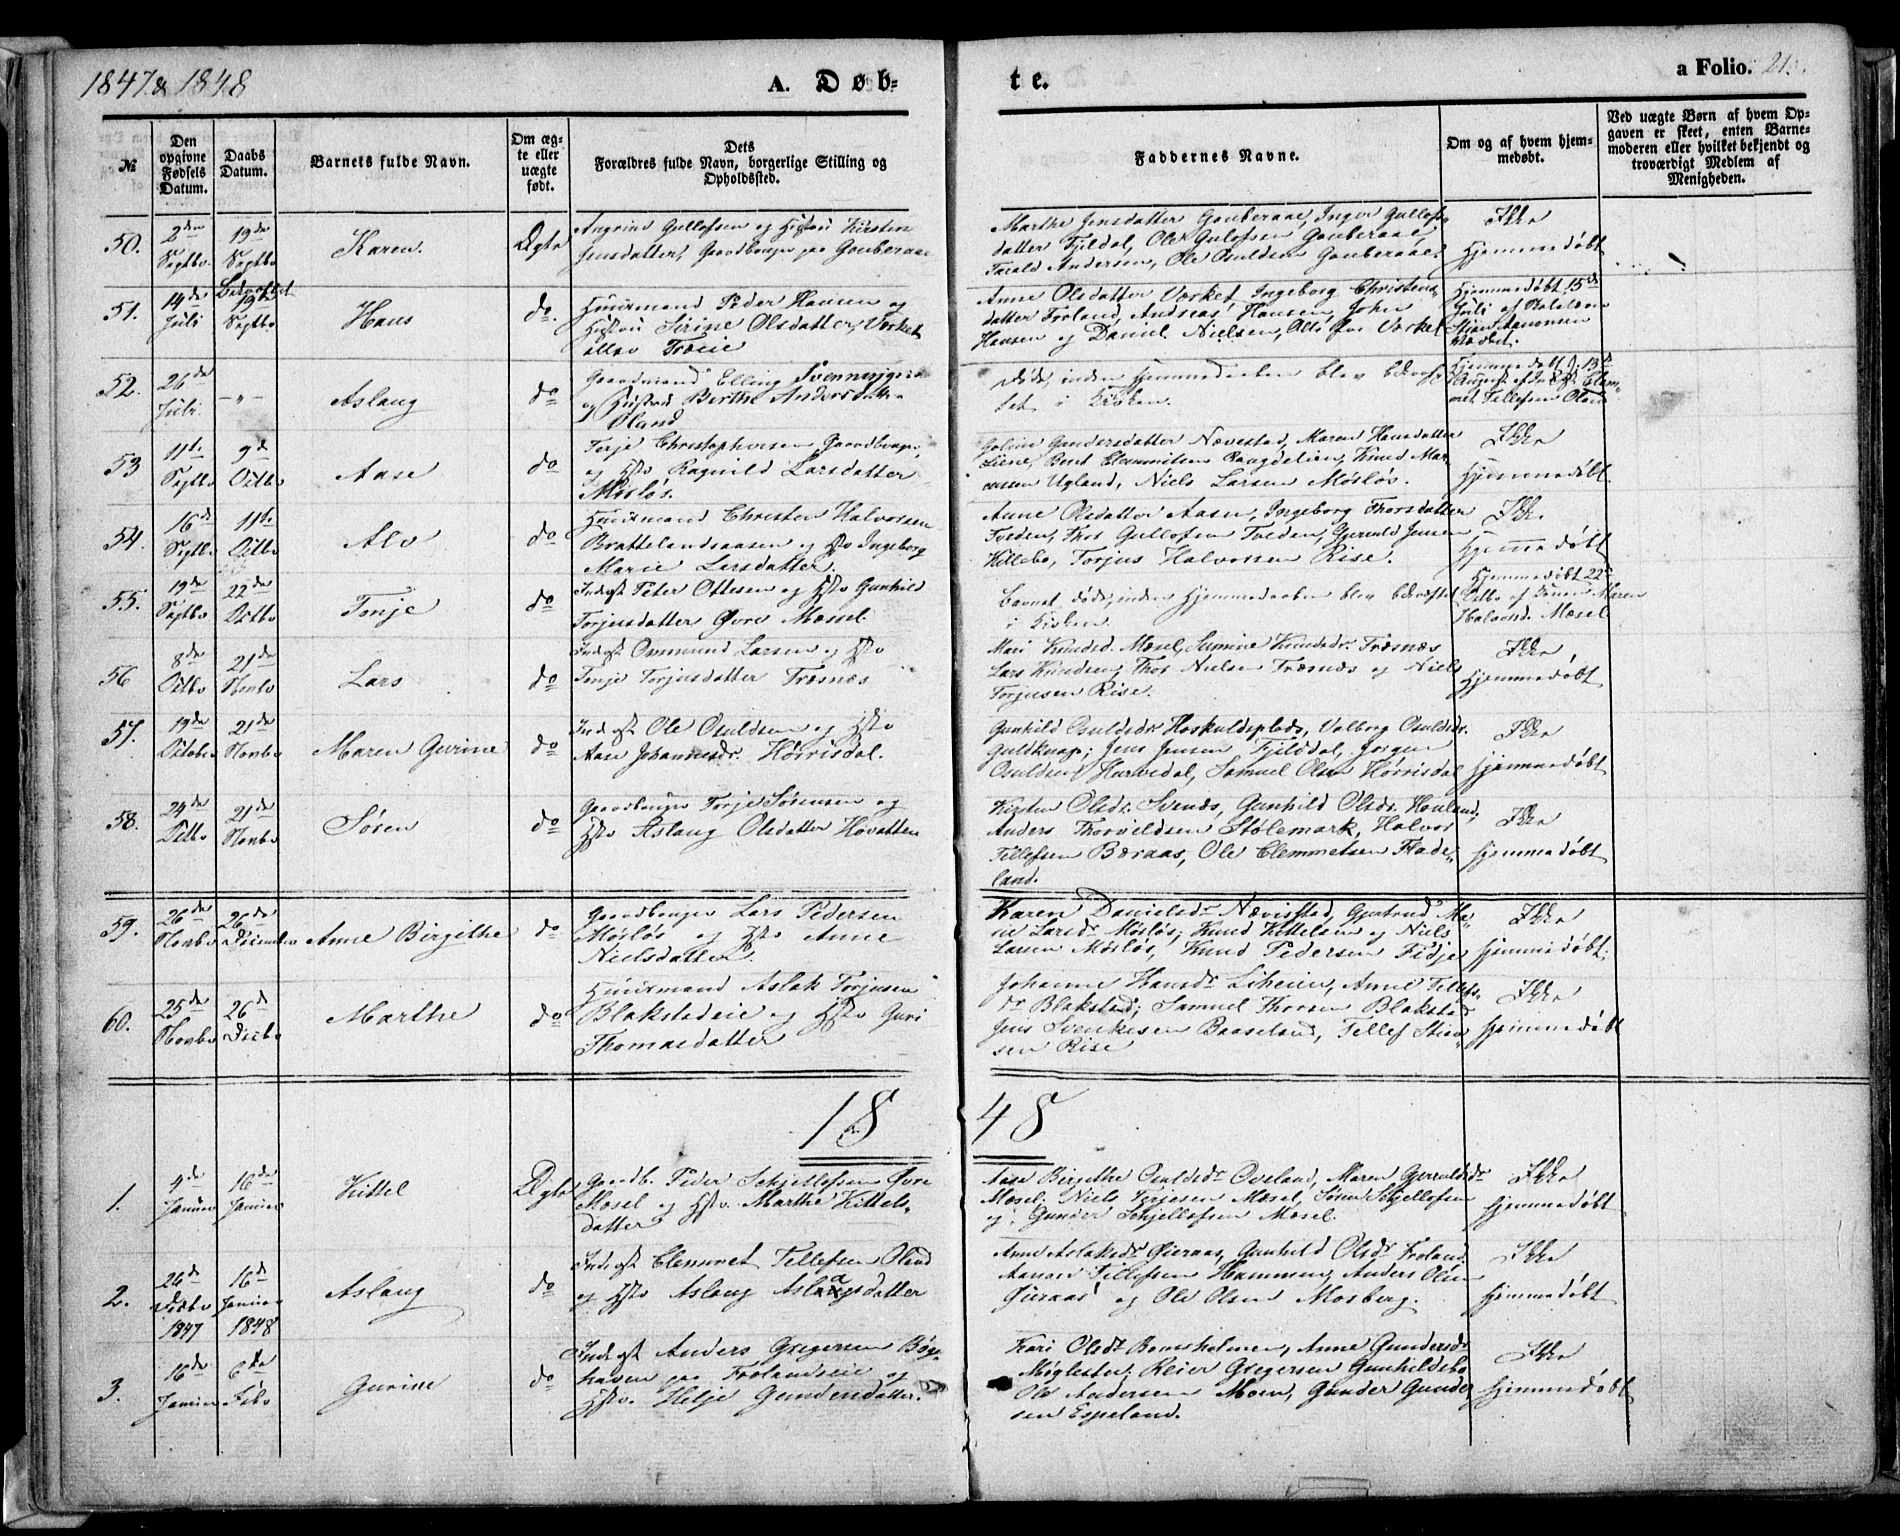 1847 & 1848
A. Døb-
te.
a Folio. 21.
№
Den opgivne Fødsels Datum.
Daabs Datum.
Barnets fulde Navn.
Om ægte eller uægte født.
Dets Forældres fulde Navn, borgerlige Stilling og Opholdsted.
Faddernes Navne.
Om og af hvem hjemmedøbt.
Ved uægte Børn af hvem Opgaven er skeet, enten Barnemoderen eller hvilket bekjendt og troværdigt Medlem af Menigheden.
50.
2den Septbr.
19de Septbr.
Karen.
Ægte
Gullofsen og Hustru Kirsten
Jensdatter, Gaardbruger paa
Marthe Jensdatter Inger Gullofs-
datter Fjeldal, Ole Gulofsen
Andersen, Ole Osuldsen
Ikke
Hjemmedøbt
51.
14de Juli
Bekræftet 19de Septbr.
Hans
do.
Huusmand Peder Hansen og
Hustru Sirine Olsdatter, Værket
Anne Olsdatter Værket, Ingeborg Christens-
datter Froland, Andreas Hansen, John
Hansen og Daniel Nielsen, Alle fra Værket
Hjemmedøbt 15de
Juli af
Aanonsen
Værket.
52.
26de Juli.
-"-
Aslaug
do
Gaardmand Elling
og Hustru Berthe Andersdatter
Øland
Døde, inden Hjemmedaaben blev bekræf-
tet i Kirken.
Hjemmedøbt d. 13de
August af Clem-
met Tellefsen Øland
53
11te Septbr
9de Octbr
Aase
do
Terje Christophersen Gaardbruger,
og Hstr Ragnild Larsdatter
Mørløs.
Gundersdatter Nævestad, Maren Hansdatter
Liene, Berit Clemmetsen Knud Mar-
cussen Ugland, Niels Larsen Mørløs.
Ikke
Hjemmedøbt.
54.
16de Septbr
11te Octbr
Alv
do
Huusmand Christen Halvorsen
Brattelandsaasen og Hstr Ingeborg
Marie Larsdatter.
Anne Olsdatter Aasen, Ingeborg Thorsdatter
Tveden, Thor Gullofsen Tveden, Gjeruld Jensen
Hillebo, Torjus Halvorsen Rise.
Ikke
Hjemmedøbt
55.
19de Septbr
22de Octbr
Tonje
do
Inderst Peter Ottesen og Hstr Gunhild
Torjusdatter Øvre Mæssel.
Barnet døde, inden Hjemmedaaben blev bekræftet
i Kirken.
Hjemmedøbt 22de
Octbr af Maren
Halvorsd. Mæsel
56
8de Octbr
21de Novbr
Lars
do
Inderst Ommund Larsen og Hstr
Tonje Torjusdatter Træsnæs
Mari Knudsd. Mæsel, Knudsdr. Træsnæs
Lars Knudsen, Thor Nielsen Træsnæs og Niels
Torjusen Rise.
Ikke
Hjemmedøbt
57.
19de October
21de Novbr
Maren Gurine
do
Inderst Ole Osuldsen og Hstr
Aase Johannesdr. Hørrisdal.
Gunhild Osuldsdr. Hoskuldsplads, Valborg Osuldsdr.
Guldknap; Jens Jensen Fjeldal, Jørgen
Osuldsen Hurvedal, Samuel Olsen Hørrisdal
Ikke
Hjemmedøbt
58.
24de Octbr
21de Novbr
Søren
do
Gaardbruger Torje Sørensen og
Hstr Aslaug Olsdatter Høvatten
Kirsten Olsdr. Svenæs, Gunhild Olsdr. Houland,
Anders Thorvildsen Stølemark, Halvor
Tellefsen Bæraas, Ole Clemmetsen Flade-
land.
Ikke
Hjemmedøbt
59.
26de Novbr
26de December
Anne Birgithe
do
Gaardbruger Lars Pedersen
Mørløs og Hstr Anne
Nielsdatter.
Karen Danielsdr Nævisstad, Gjertrud Ma-
rie Larsdr Mørløs; Knud Kittelsen og Niels
Larsen Mørløs, Knud Pedersen Fidje
Ikke
Hjemmedøbt.
60.
25de Novbr
26de Decbr
Marthe
do
Huusmand Aslak Torjusen
Blakstadeie og Hstr Guri
Thomasdatter
Johanne Hansdr Liheien, Anne Tellefs-
dr Blakstad; Samuel Thorsen Blakstad
Jens Svenkesen Baaseland, Tellef Stian-
sen Rise
Ikke
Hjemmedøbt
1848
1.
4de Januar
16de Januar
Kittel
Ægte
Gaardb. Peder Schjellefsen Øvre
Mæsel og Hstr. Marthe Kittels-
datter
Aase Birgithe Osuldsdr Oveland, Maren Gjeruldsdr
Mæsel; Niels Terjesen Mæsel, Schjellefsen
og Gunder Schjellefsen Mæsel.
Ikke
Hjemmedøbt
2.
26de Decbr 1847
16de Januar 1848
Aslaug
do
Inderst Clemmet Tellefsen Øland
og Hstr Aslaug Aslagsdatter
Anne Aslaksdr Gieraas, Gunhild Olsdr Froland.
Aanon Tellefsen Hammer, Anders Olsen
Gieraas og Ole Olsen Mosberg.
Ikke
Hjemmedøbt
3.
16de Januar
6te Febr
Gurine
do
Inderst Anders Gregersen Bøge-
haven paa Frolandseie og
Hstr. Helje Gundersdatter.
Kari Olsdr Bomsholmen, Anne Gundersdr
Møglestu; Reier Gregersen Gunhildsbo
Ole Andersen Moen, Gunder Gunder-
sen Espeland.
Ikke
Hjemmedøbt